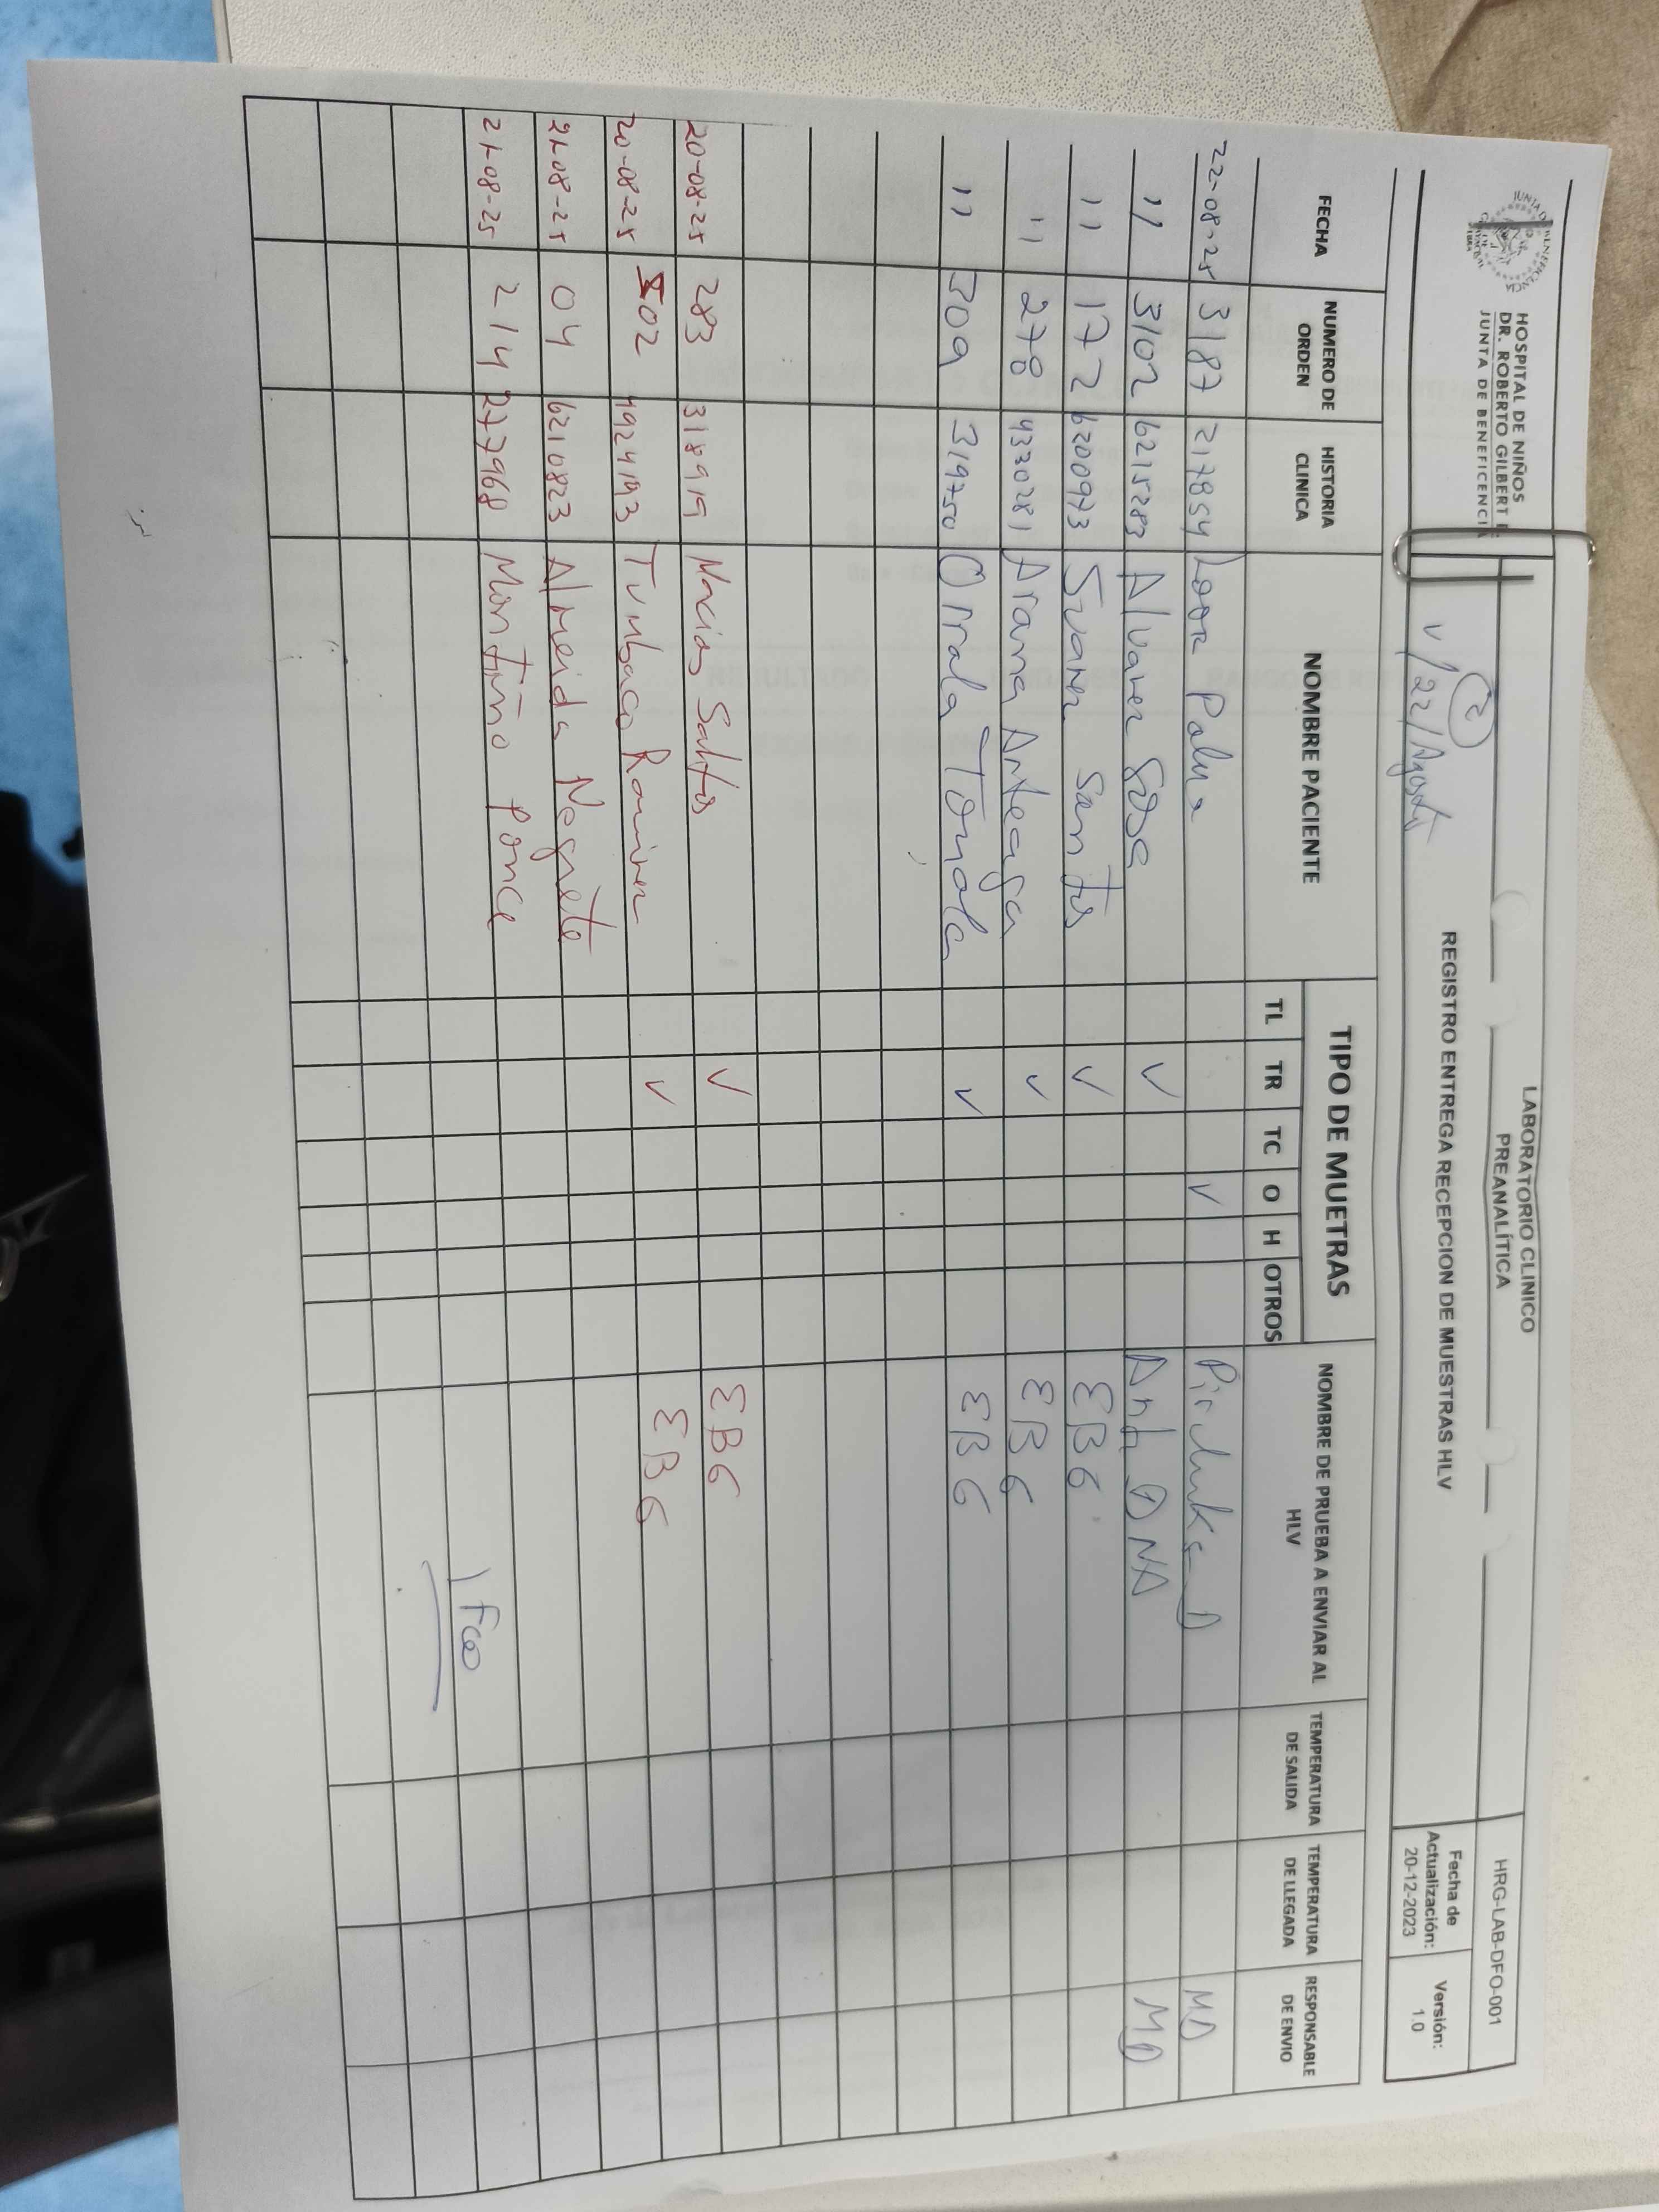 HOSPITAL DE NIÑOS
DR. ROBERTO GILBERT E.
JUNTA DE BENEFICENCIA
LABORATORIO CLINICO
PREANALÍTICA
HRG-LAB-DFO-001
2
v/22/Agosto
REGISTRO ENTREGA RECEPCION DE MUESTRAS HLV
Fecha de Actualización: 20-12-2023
Versión: 1.0
FECHA NUMERO DE ORDEN HISTORIA CLINICA NOMBRE PACIENTE TIPO DE MUETRAS NOMBRE DE PRUEBA A ENVIAR AL HLV TEMPERATURA DE SALIDA TEMPERATURA DE LLEGADA RESPONSABLE DE ENVIO
TL TR TC O H OTROS
22-08-25 3187 217854 Loor Palma ✓ MD
" 3102 6215283 Alvarez Sosa ✓ Anti DNA MD
" 172 6200973 Suarez Santos ✓ EBG
" 278 4330281 Arana Arteaga ✓ EBG
" 309 319750 Orrala Tomala ✓ EBG
20-08-25 283 318919 Macias Saltos ✓ EBG
20-08-25 502 4924193 Tumbaco Ramirez ✓ EBG
21-08-25 04 6210823 Almeida Negrete
21-08-25 214 277968 Montiño Ponce